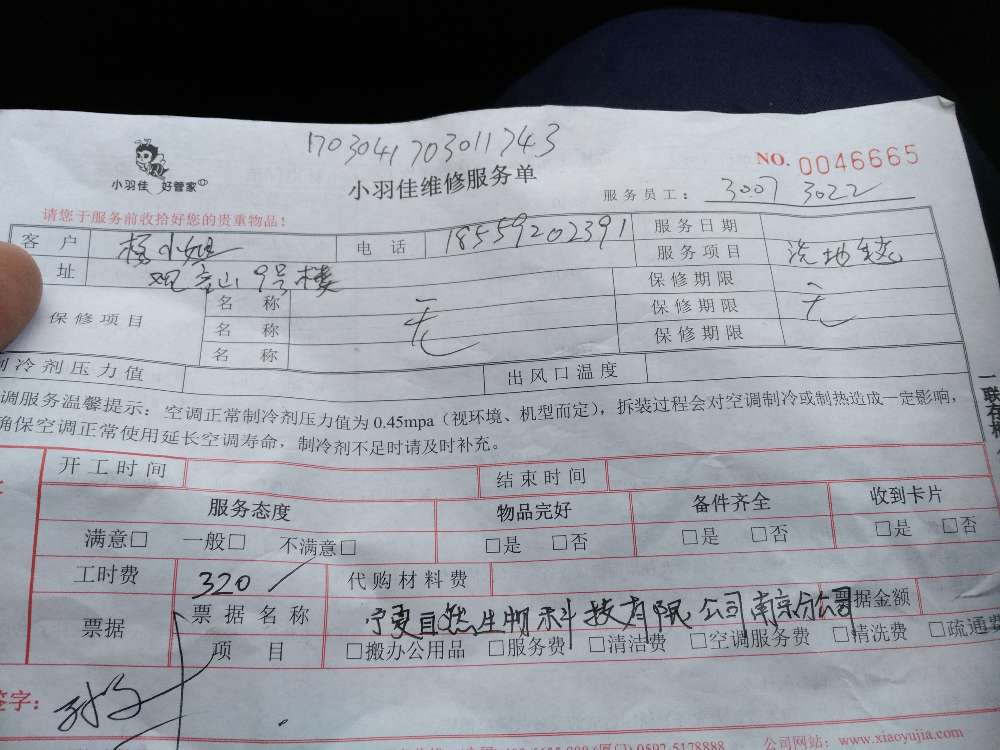 1703041703011743
小羽佳 好管家
小羽佳维修服务单
NO. 0046665
服务员工: 3007 3022
请您于服务前收拾好您的贵重物品!
客 户 杨小姐 电 话 18559202391 服务日期
址 观音山9号楼 服务项目 洗地毯
保修项目 名 称 无 保修期限 无
名 称 保修期限
名 称 保修期限
制冷剂压力值 出风口温度
调服务温馨提示:空调正常制冷剂压力值为0.45mpa(视环境、机型而定),拆装过程会对空调制冷或制热造成一定影响,
确保空调正常使用延长空调寿命,制冷剂不足时请及时补充。
开工时间 结束时间
服务态度 物品完好 备件齐全 收到卡片
满意□ 一般□ 不满意□ □是 □否 □是 □否 □是 □否
工时费 320 代购材料费
票据 票据名称 宁夏自然生物科技有限公司南京分公司 据金额
项 目 □搬办公用品 □服务费 □清洁费 □空调服务费 □清洗费 □疏通费
签字:
公司网站:www.xiaoyujia.com